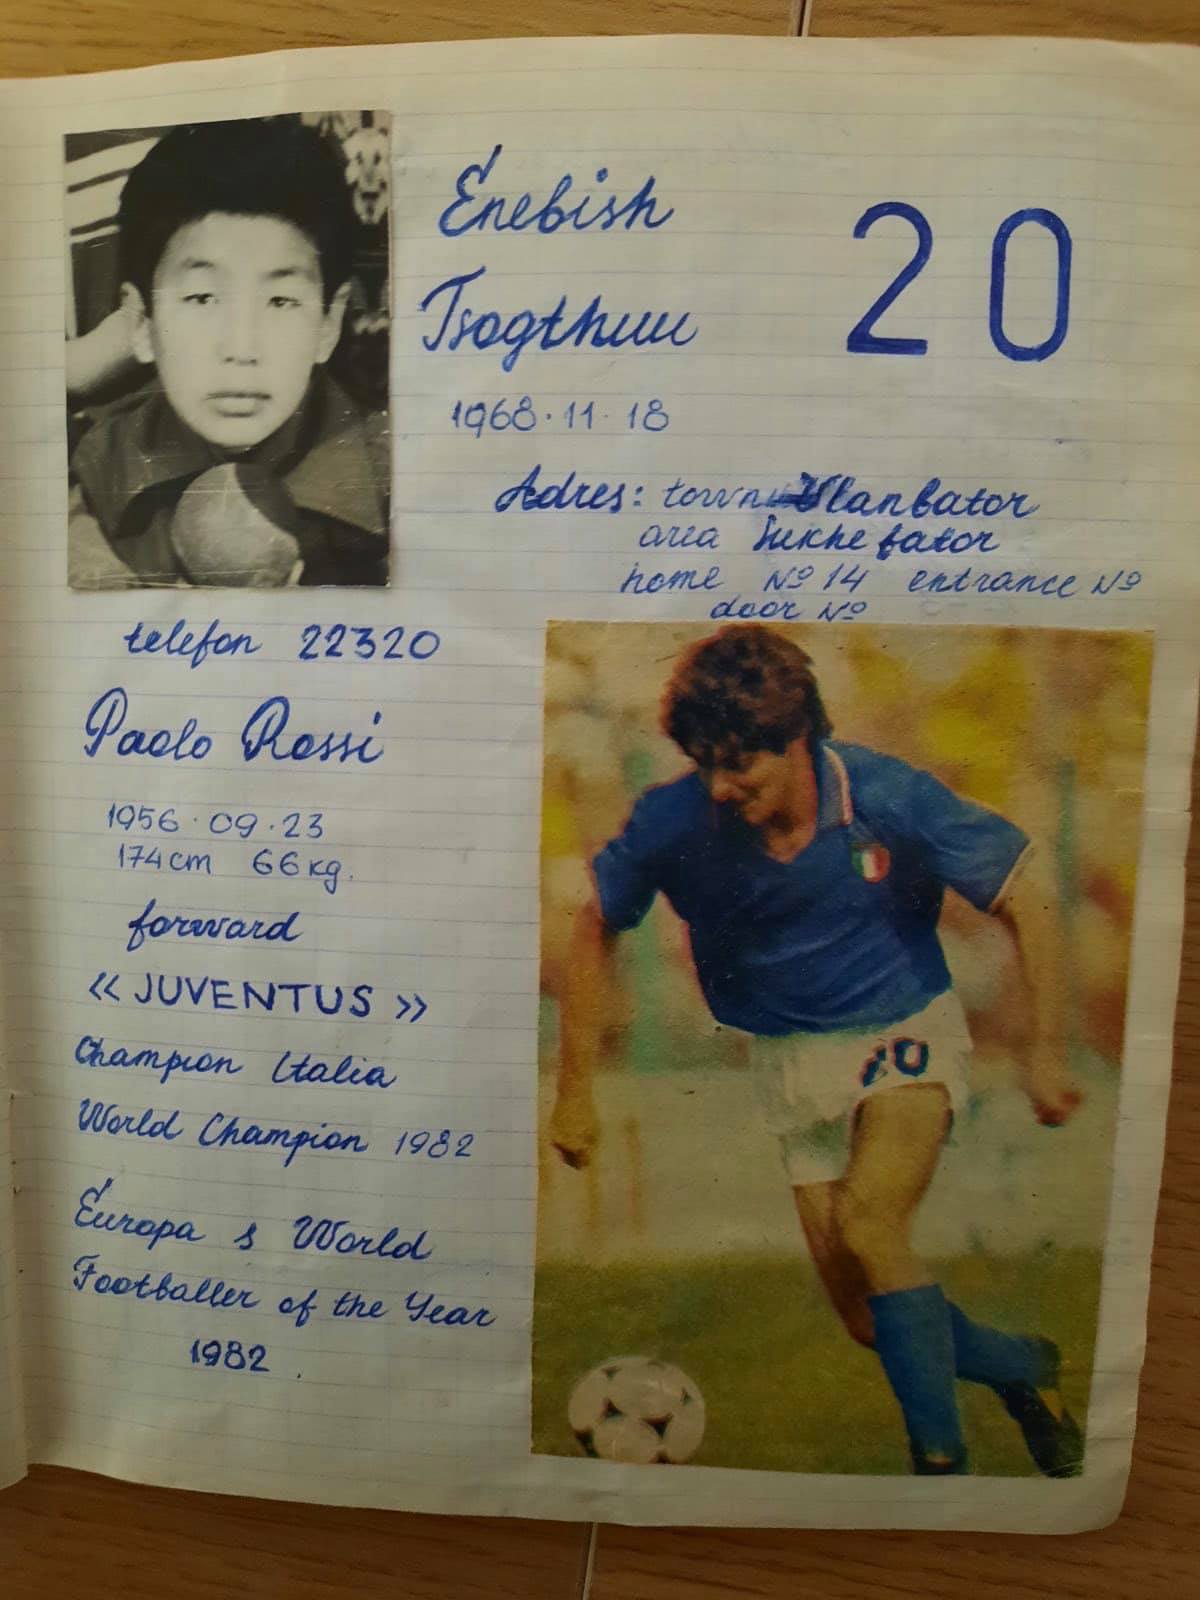 Enebish
Tsogthuu
20
1968·11·18
Adres: town Ulanbator
area Sukhe bator
home № 14 entrance №
door №
telefon 22320
Paolo Rossi
1956·09·23
174cm 66kg.
forward
« JUVENTUS »
Champion Italia
World Champion 1982
Europa s World
Footballer of the Year
1982.
20